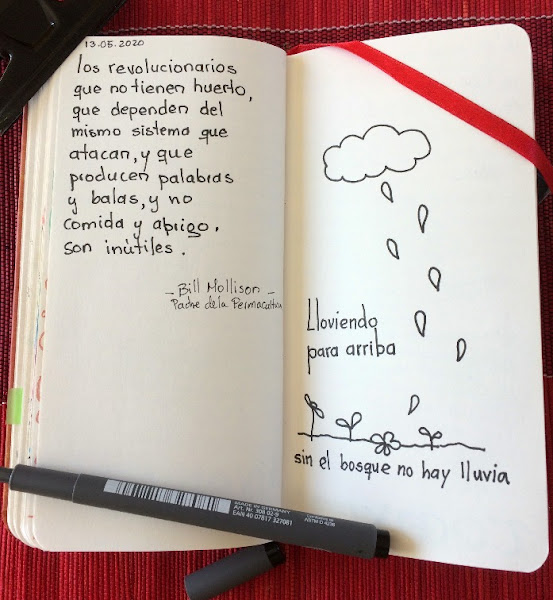 13.05.2020
los revolucionarios
que no tienen huerto,
que dependen del
mismo sistema que
atacan, y que
producen palabras
y balas, y no
comida y abrigo.
son inútiles.
- Bill Mollison -
Padre de la Permacultura
Lloviendo
para arriba
sin el bosque no hay lluvia
MADE IN GERMANY
Art. Nr. 308 02-9
EAN 40 07817 327081
ASTM D 4236